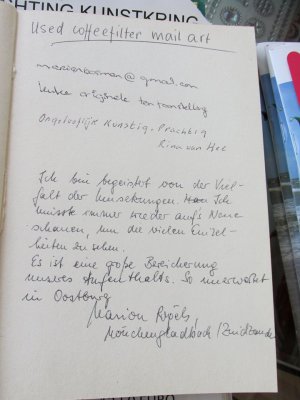 CHTING KUNSTKRING
Used coffeefilter mail art
@gmail.com
leuke originele tentoonstelling
Ongelooflijk Kunstig - Prachtig
Rina van Hee
Ich bin begeistert von der Viel-
falt der Umsetzungen. Ich
musste immer wieder aufs Neue
schauen, um die vielen Einzel-
heiten zu sehen.
Es ist eine große Bereicherung
unseres Aufenthalts. So unerwartet
in Oostburg
Marion
Mönchengladbach / Zuidzande